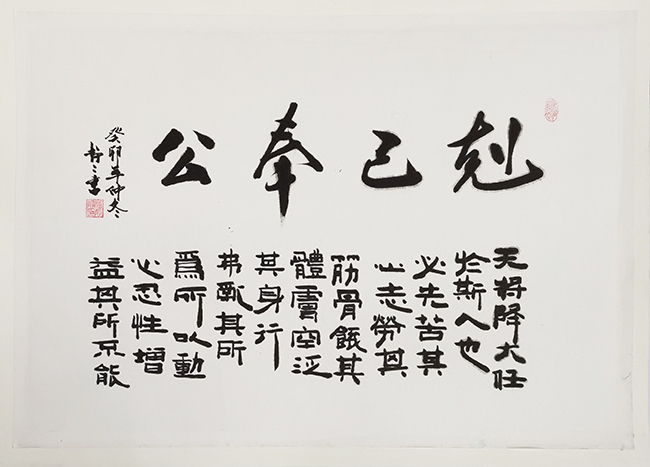 剋己奉公
天將降大任
於斯人也
必先苦其
心志勞其
筋骨餓其
體膚空乏
其身行
弗亂其所
爲所以動
心忍性增
益其所不能
癸卯年仲冬